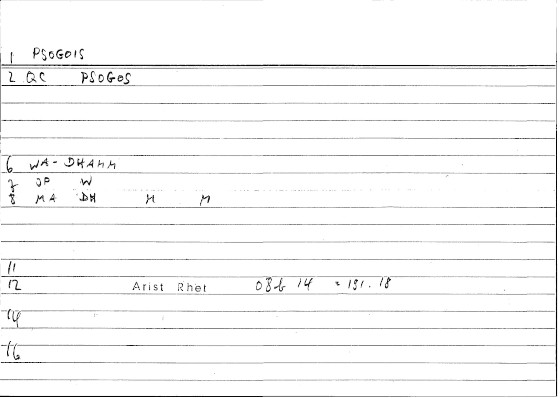 1 PSOGOIS
2 QC PSOGOS
6 WA-DHAMM
7 OP W
8 MA DH M M
11
12 Arist Rhet 08b 14 = 191.18
14
16